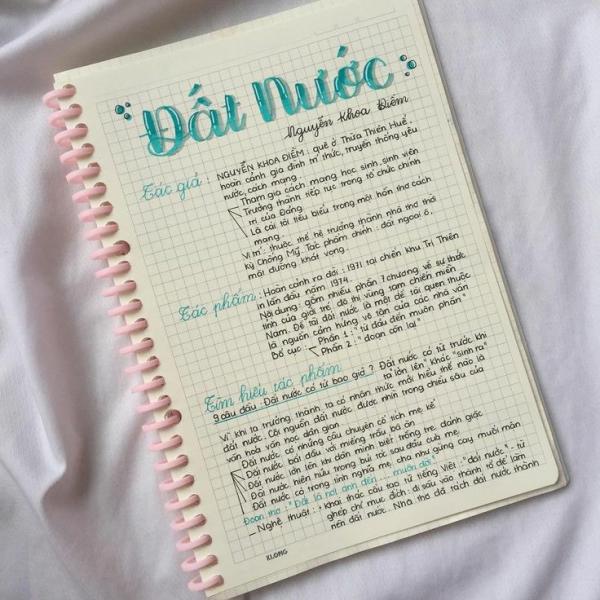 Đất Nước
Nguyễn Khoa Điềm
Tác giả : NGUYỄN KHOA ĐIỀM : quê ở Thừa Thiên Huế,
hoàn cảnh gia đình trí thức, truyền thống yêu
nước, cách mạng.
Tham gia cách mạng học sinh, sinh viên
Trưởng thành tiếp tục trong tổ chức chính
trị của Đảng.
Là cái tôi tiêu biểu trong một hồn thơ cách
mạng.
Vị trí : thuộc thế hệ trưởng thành nhà thơ thời
kỳ Chống Mỹ. Tác phẩm chính : đất ngoại ô,
mặt đường khát vọng.
Tác phẩm : Hoàn cảnh ra đời : 1971 tại chiến khu Trị Thiên
in lần đầu năm 1974.
Nội dung : gồm nhiều phần 7 chương, về sự thức
tỉnh của giới trẻ đô thị vùng tạm chiến miền
Nam. Đề tài đất nước là một đề tài quen thuộc
là nguồn cảm hứng vô tận của các nhà văn
Bố cục : Phần 1 : " từ đầu đến muôn phần "
Phần 2 : " đoạn còn lại "
Tìm hiểu tác phẩm
9 câu đầu : Đất nước có từ bao giờ ? Đất nước có từ trước khi
ta "lớn lên" khác "sinh ra"
Vì khi ta trưởng thành, ta có nhận thức mới hiểu thế nào là
đất nước. Cội nguồn đất nước được nhìn trong chiều sâu của
văn hoá văn học dân gian
Đất nước có những câu chuyện cổ tích mẹ kể
Đất nước bắt đầu với miếng trầu bà ăn
Đất nước lớn lên khi dân mình biết trồng tre, đánh giặc
Đất nước hiện hữu trong búi tóc sau đầu của mẹ
Đất nước có trong tình nghĩa mẹ, cha như gừng cay muối mặn
Đoạn thơ : " Đất là nơi anh đến ... muôn đời "
_ Nghệ thuật : + Khai thác cấu tạo từ tiếng Việt : " đất nước " - từ
ghép chỉ mục đích : đi sâu vào thành tố để làm
nên đất nước. Nhà thơ đã tách đất nước thành
KLONG